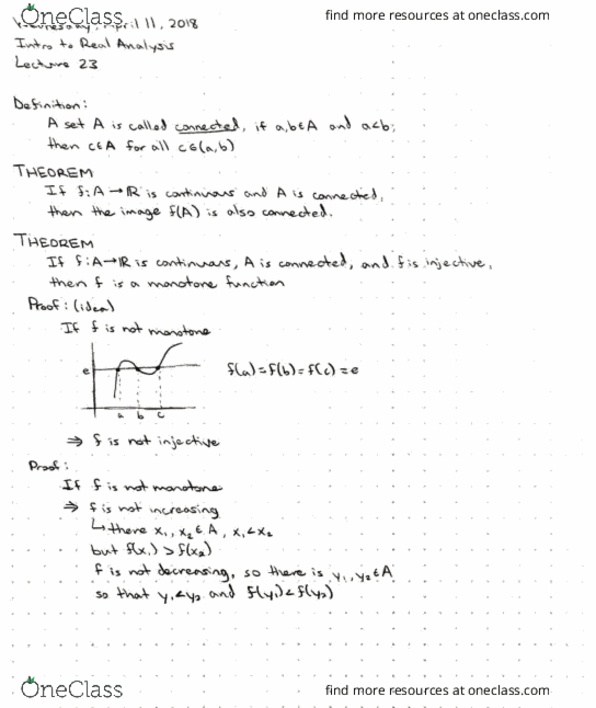 OneClass
find more resources at oneclass.com
Wednesday, April 11, 2018
Intro to Real Analysis
Lecture 23
Definition:
A set A is called connected, if a,b∈A and a<b;
then c∈A for all c∈(a,b)
THEOREM
If f:A→ℝ is continuous and A is connected,
then the image f(A) is also connected.
THEOREM
If f:A→ℝ is continuous, A is connected, and f is injective,
then f is a monotone function
Proof: (idea)
If f is not monotone
e
f(a)=f(b)=f(c)=e
a b c
⇒ f is not injective
Proof:
If f is not monotone
⇒ f is not increasing
↳ there x₁, x₂ ∈ A, x₁<x₂
but f(x₁) > f(x₂)
f is not decreasing, so there is y₁, y₂ ∈ A
so that y₁<y₂ and f(y₁) < f(y₂)
OneClass
find more resources at oneclass.com